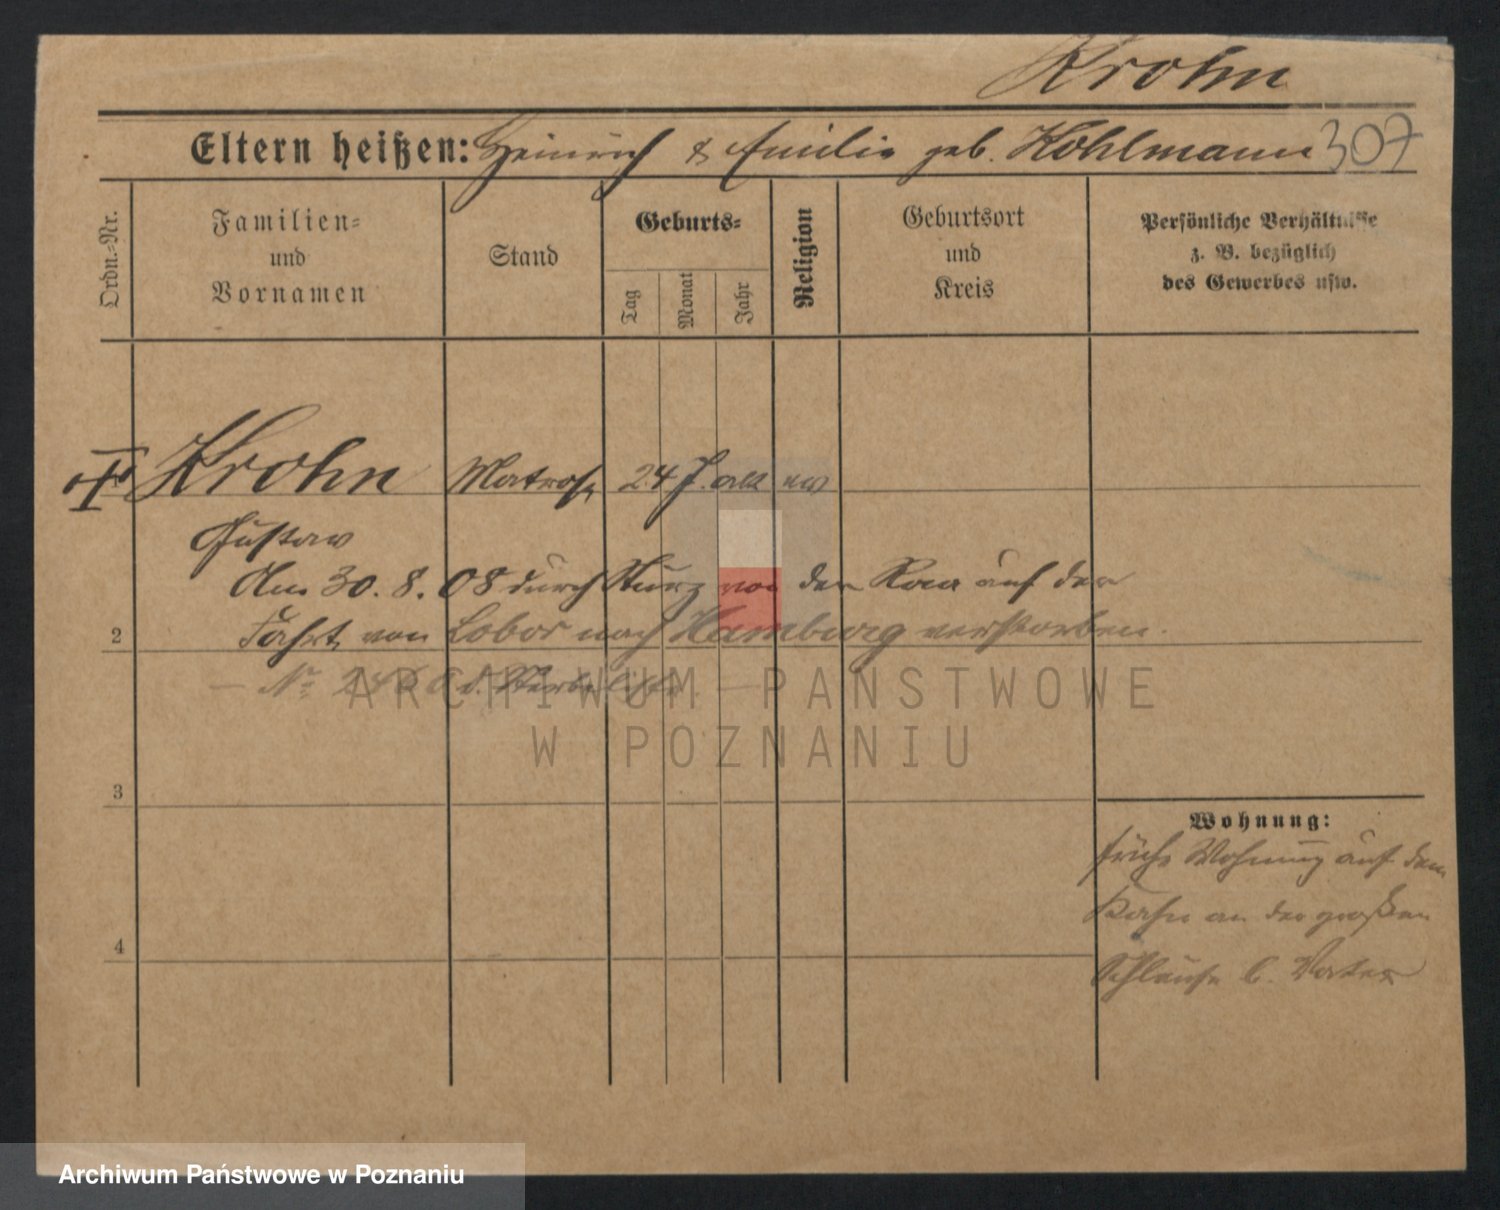 Krohn
Eltern heißen: Heinrich & Emilie geb. Kohlmann 307
Ordn.-Nr.
Familien-
und
Vornamen
Stand
Geburts-
Tag
Monat
Jahr
Religion
Geburtsort
und
Kreis
Persönliche Verhältnisse
z. B. bezüglich
des Gewerbes usw.
Krohn Matrose 24 J. alt ev
Gustav
Am 30. 8. 08 durch Sturz von der Raa auf der
2 Fahrt von nach Hamburg verstorben.
ARCHIWUM PAŃSTWOWE
W POZNANIU
3
Wohnung:
frühe Wohnung auf dem
Kahn an der großen
4
Schleuse b. Vater
Archiwum Państwowe w Poznaniu